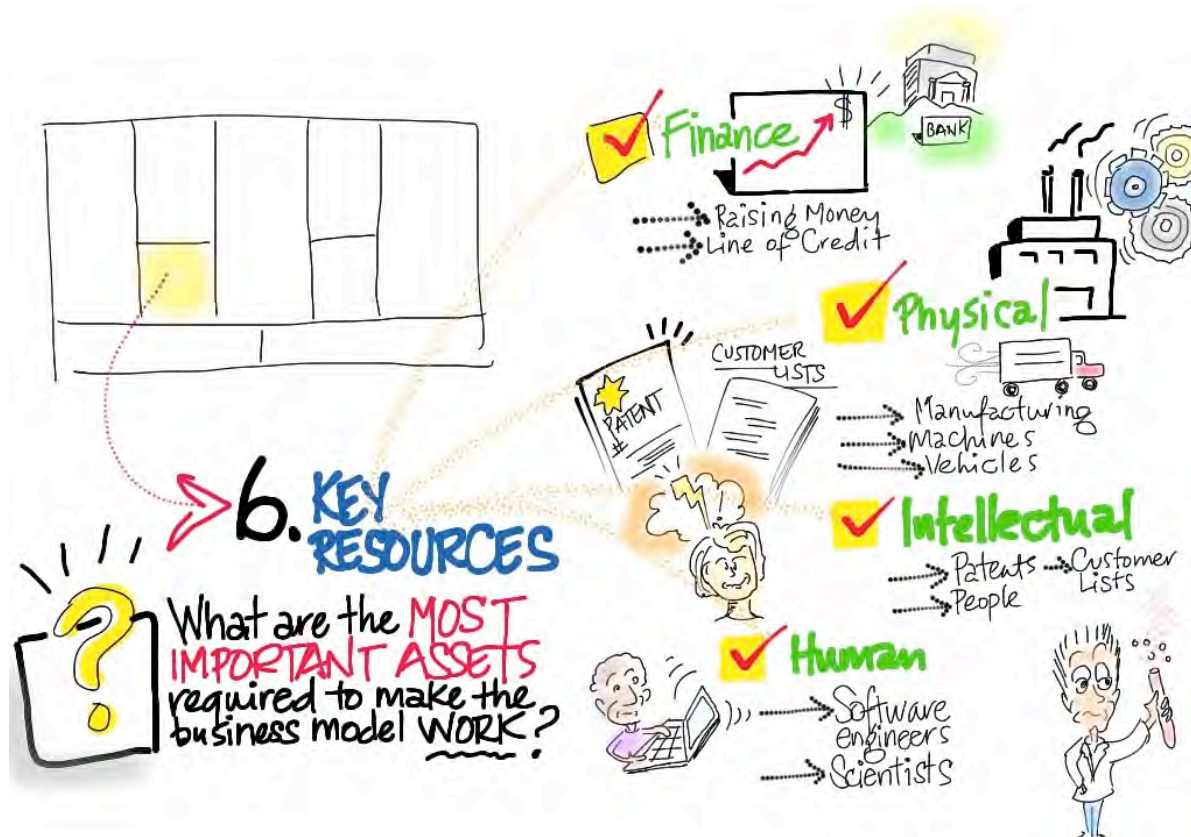 6. KEY
RESOURCES
What are the MOST
IMPORTANT ASSETS
required to make the
business model WORK?
Finance
$
BANK
Raising Money
Line of Credit
Physical
Manufacturing
Machines
Vehicles
CUSTOMER
LISTS
PATENT
#
Intellectual
Patents Customer
Lists
People
Human
Software
engineers
Scientists